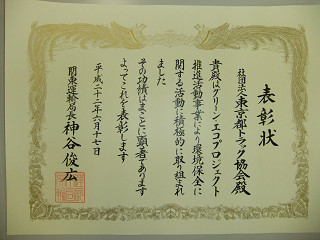 表彰状
社団法人東京都トラック協会殿
貴殿はグリーン・エコプロジェクト
推進活動事業により環境保全に
関する活動に積極的に取り組まれ
ました
その功績はまことに顕著であります
よってこれを表彰します
平成二十二年六月十七日
関東運輸局長 神谷俊広